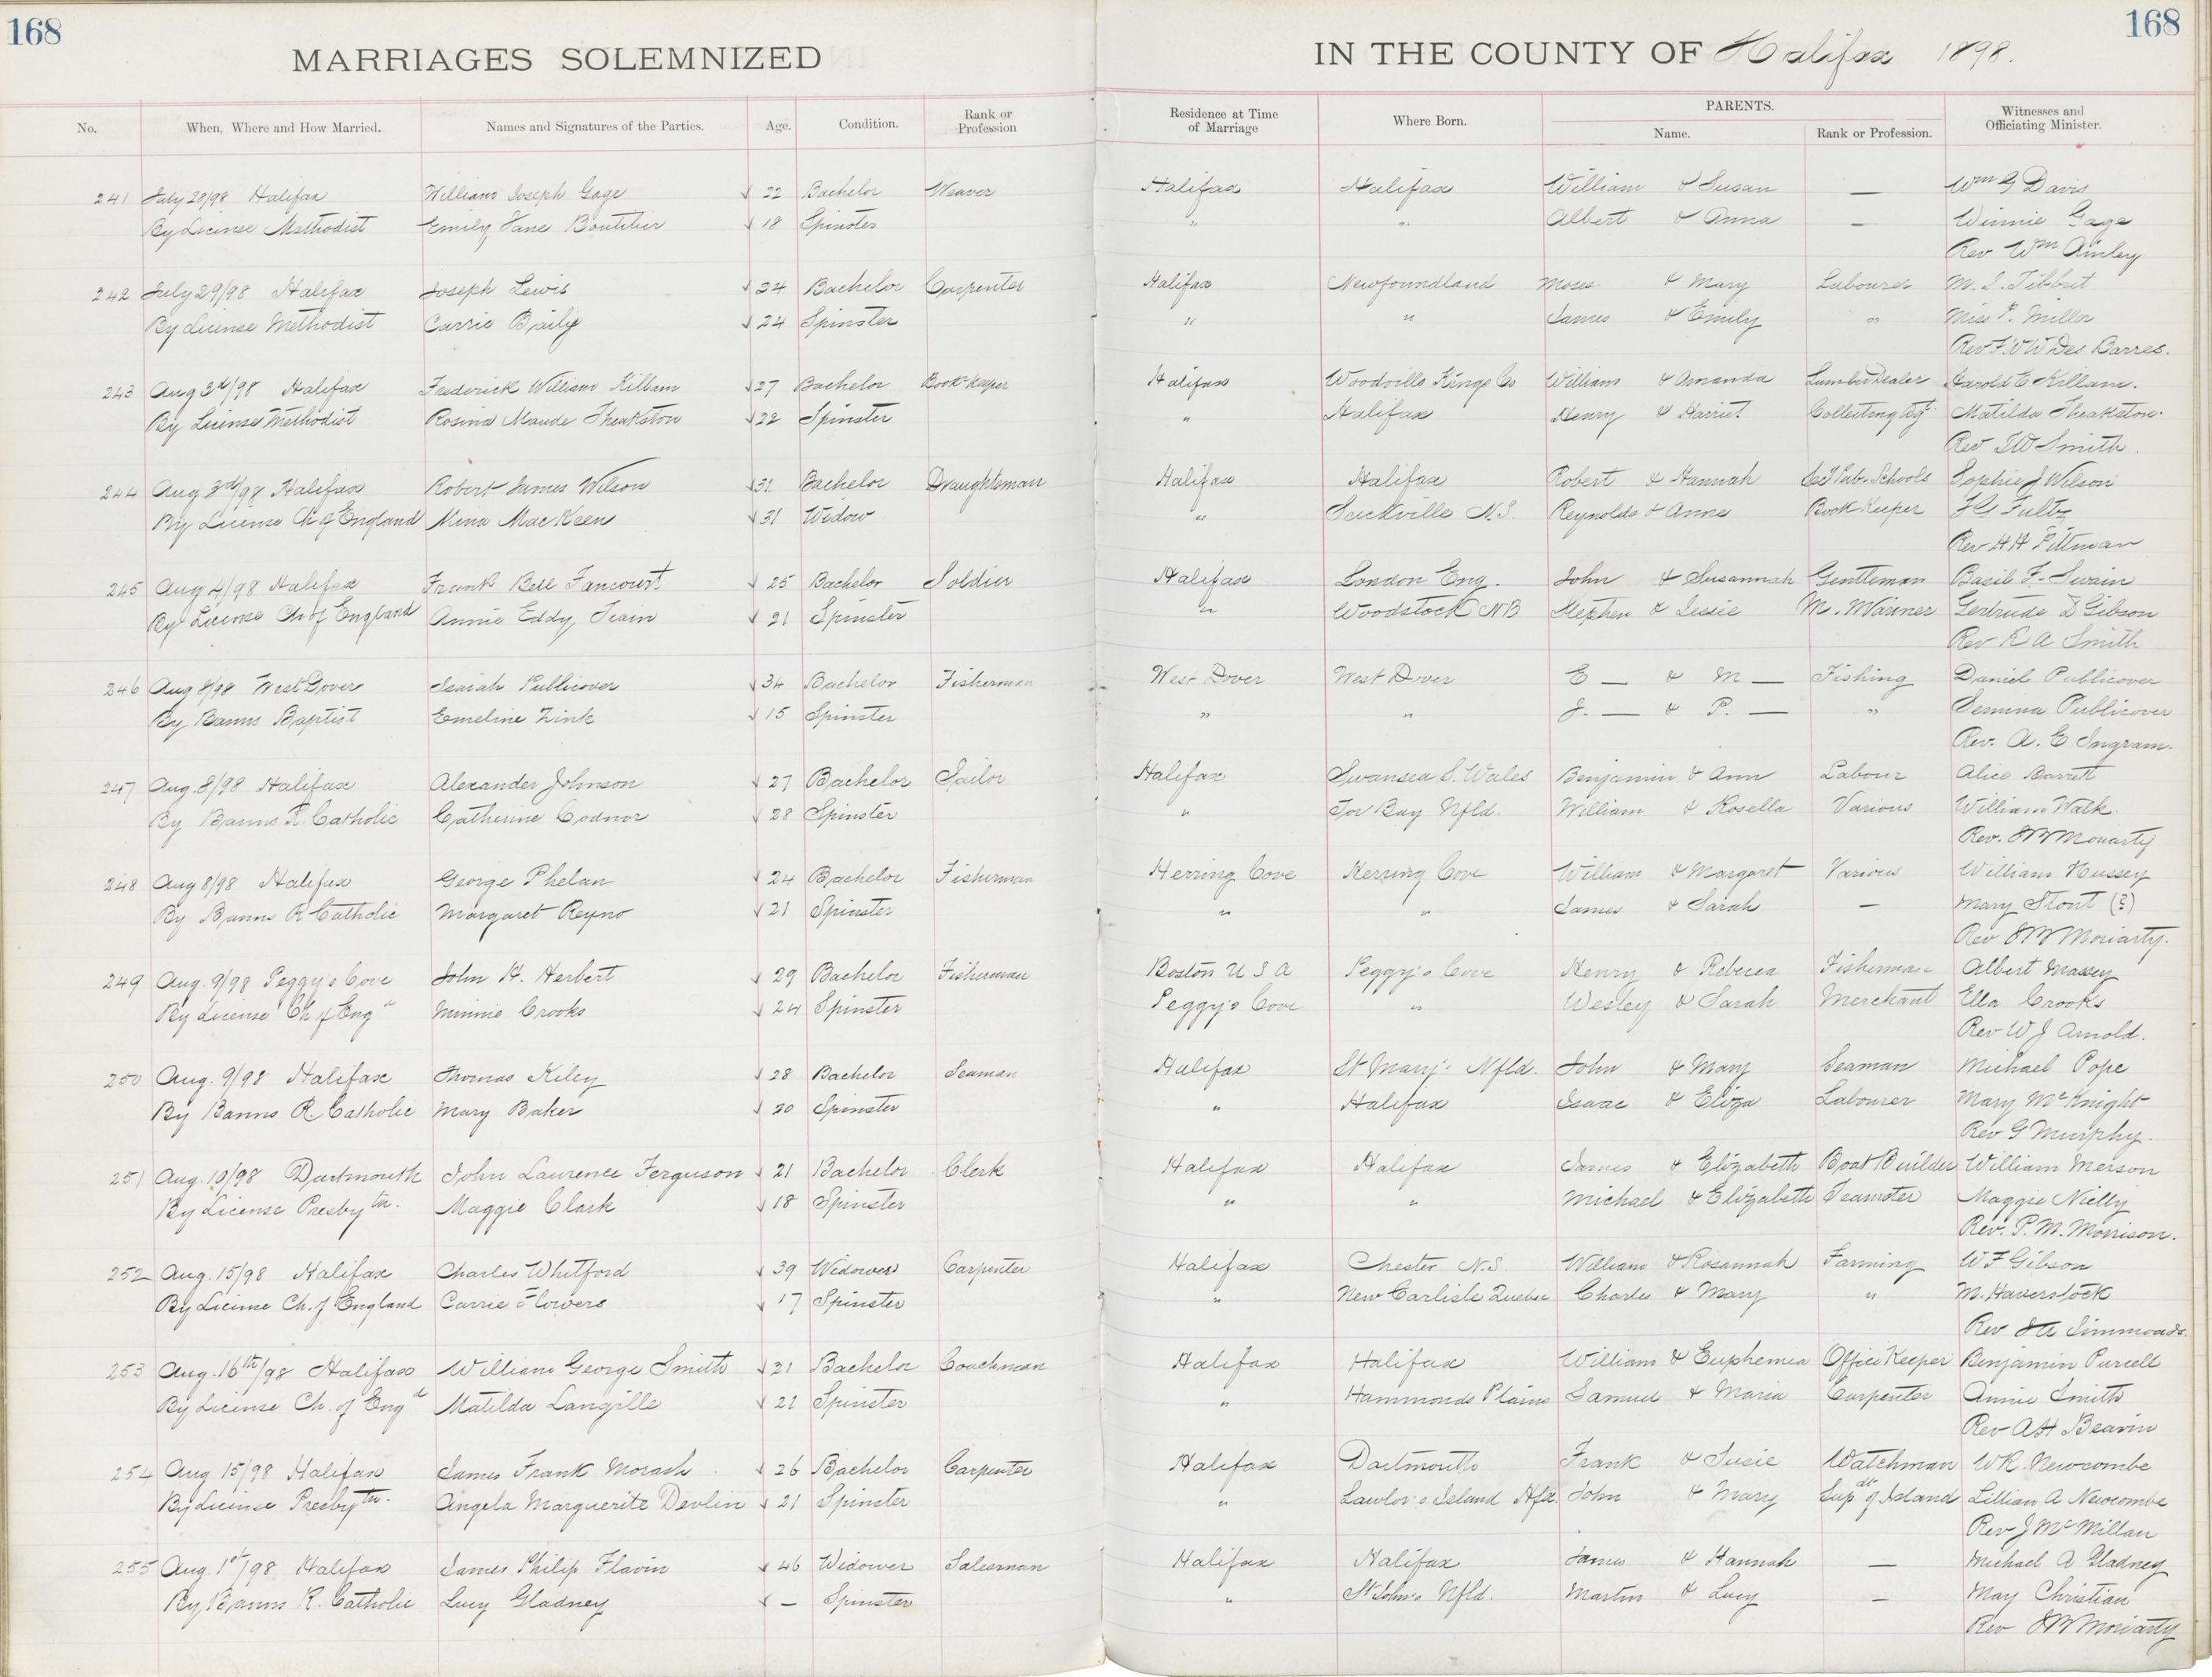 168
168
MARRIAGES SOLEMNIZED
IN THE COUNTY OF Halifax 1898.
No. When, Where and How Married. Names and Signatures of the Parties. Age. Condition. Rank or Profession Residence at Time of Marriage Where Born. PARENTS. Name. Rank or Profession. Witnesses and Officiating Minister.
241 July 28/98 Halifax William Joseph Gage √ 22 Bachelor Weaver Halifax Halifax William & Susan — Wm G Davis
By License Methodist Emily Jane Boutilier √ 18 Spinster " " Albert & Anna — Winnie Gage
Rev Wm Ainley
242 July 29/98 Halifax Joseph Lewis √ 24 Bachelor Carpenter Halifax Newfoundland Moses & Mary Labourer M. S. Tibbet
By License Methodist Carrie Baily √ 24 Spinster " " James & Emily " Miss F. Miller
Rev F W W Des Barres.
243 Aug 3d/98 Halifax Frederick William Killam √ 27 Bachelor Book-Keeper Halifax Woodville Kings Co William & Amanda Lumber Dealer Harold E Killam.
By License Methodist Rosina Maude Theakston √ 22 Spinster " Halifax Henry & Harriet Collecting Agt. Matilda Theakston.
Rev T W Smith.
244 Aug 3rd/98 Halifax Robert James Wilson √ 31 Bachelor Draughtsman Halifax Halifax Robert & Hannah Secy Pub. Schools Sophie J Wilson
By License Ch of England Mina MacKeen √ 31 Widow " Sackville N.S. Reynolds & Anne Book Keeper Fultz
Rev H H Pittman
245 Aug 4/98 Halifax Frank Bell Fancourt √ 25 Bachelor Soldier Halifax London Eng. John & Susannah Gentleman Basil F. Swain
By License Ch of England Annie Eddy Train √ 21 Spinster " Woodstock NB Stephen & Jessie M. Mariner Gertrude D Gibson
Rev E A Smith
246 Aug 8/98 West Dover Isaiah Publicover √ 34 Bachelor Fisherman West Dover West Dover E — & M — Fishing Daniel Publicover
By Banns Baptist Emeline Zink √ 15 Spinster " " J. — & P. — " Publicover
Rev. A. E Ingram.
247 Aug 8/98 Halifax Alexander Johnson √ 27 Bachelor Sailor Halifax Swansea S. Wales Benjamin & Ann Labour Alice Barrett
By Banns R. Catholic Catherine Codnor √ 28 Spinster " Tor Bay Nfld. William & Rosella Various William Walk.
Rev. Moriarty
248 Aug 8/98 Halifax George Phelan √ 24 Bachelor Fisherman Herring Cove Herring Cove William & Margaret Various William Hussey
By Banns R Catholic Margaret Reyno √ 21 Spinster " " James & Sarah — Mary Stout (?)
Rev Moriarty.
249 Aug. 9/98 Peggy's Cove John H. Herbert √ 29 Bachelor Fisherman Boston U S A Peggy's Cove Henry & Rebecca Fisherman Albert Massey
By License Ch of Engd Minnie Crooks √ 24 Spinster Peggy's Cove " Wesley & Sarah Merchant Ella Crooks
Rev W J Arnold.
250 Aug. 9/98 Halifax Thomas Kiley √ 28 Bachelor Seaman Halifax St Mary's Nfld. John & Mary Seaman Michael Pope
By Banns R. Catholic Mary Baker √ 20 Spinster " Halifax Isaac & Eliza Labourer Mary McKnight
Rev G Murphy.
251 Aug. 10/98 Dartmouth John Laurence Ferguson √ 21 Bachelor Clerk Halifax Halifax James & Elizabeth Boat Builder William Merson
By License Presbytn. Maggie Clark √ 18 Spinster " " Michael & Elizabeth Teamster Maggie Nielly
Rev. P. M. Morrison.
252 Aug. 15/98 Halifax Charles Whitford √ 39 Widower Carpenter Halifax Chester N.S. William & Rosannah Farming W F Gibson
By License Ch. of England Carrie Flowers √ 17 Spinster " New Carlisle Quebec Charles & Mary " M. Haverstock
Rev Simmonds.
253 Aug. 16th/98 Halifax William George Smith √ 21 Bachelor Coachman Halifax Halifax William & Euphemia Office Keeper Benjamin Purcell
By License Ch. of Engd Matilda Langille √ 21 Spinster " Hammonds Plains Samuel & Maria Carpenter Annie Smith
Rev A H Beavin
254 Aug 15/98 Halifax James Frank Morash √ 26 Bachelor Carpenter Halifax Dartmouth Frank & Susie Watchman W R. Newcombe
By License Presbytn. Angela Marguerite Devlin √ 21 Spinster " Lawlor's Island Hfx. John & Mary Supdt of Island Lillian A Newcombe
Rev J McMillan
255 Aug. 1st/98 Halifax James Philip Flavin √ 46 Widower Salesman Halifax Halifax James & Hannah — Michael A Gladney
By Banns R. Catholic Lucy Gladney √ — Spinster " St John's Nfld. Martin & Lucy — May Christian
Rev Moriarty